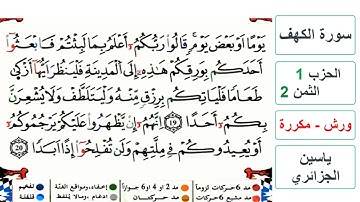 يَوْمًا أَوْ بَعْضَ يَوْمٍ قَالُوا رَبُّكُمْ أَعْلَمُ بِمَا لَبِثْتُمْ فَابْعَثُوا
أَحَدَكُم بِوَرِقِكُمْ هَٰذِهِ إِلَى ٱلْمَدِينَةِ فَلْيَنظُرْ أَيُّهَا أَزْكَىٰ
طَعَامًا فَلْيَأْتِكُم بِرِزْقٍ مِّنْهُ وَلْيَتَلَطَّفْ وَلَا يُشْعِرَنَّ
بِكُمْ أَحَدًا 19 إِنَّهُمْ إِن يَظْهَرُوا عَلَيْكُمْ يَرْجُمُوكُمْ
أَوْ يُعِيدُوكُمْ فِي مِلَّتِهِمْ وَلَن تُفْلِحُوا إِذًا أَبَدًا 20
سورة الكهف
الحزب 1
الثمن 2
ورش - مكررة
ياسين
الجزائري
مد 6 حركات لزوما
مد 2 او 4 او 6 جوازا
إخفاء، ومواقع الغنّة
تفخيم
مد مشبع 6 حركات
مد حركتان
ادغام، ومالا يُلفظ
قلقلة